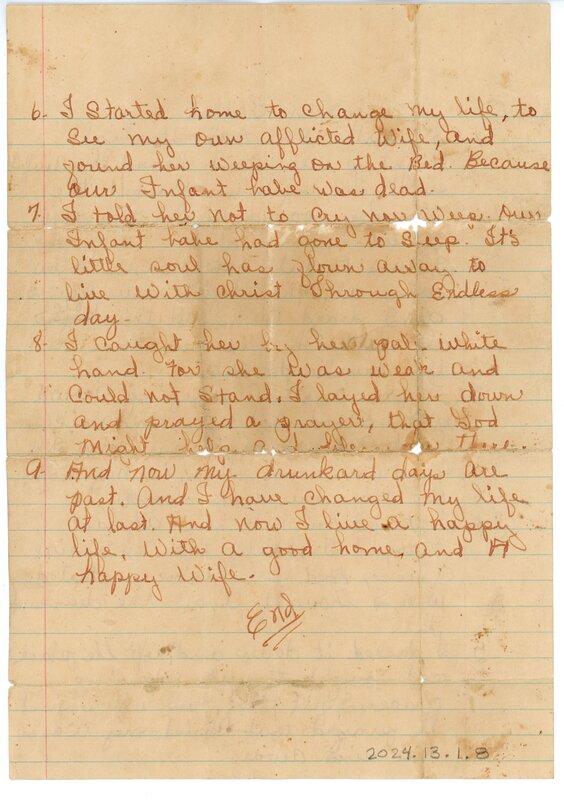 6- I Started home to change my life, to
See my own afflicted Wife, and
found her weeping on the Bed. Because
Our Infant babe was dead.
7. I told her not to Cry nor Weep. Our
Infant babe had gone to Sleep. It's
little soul has flown away to
live With Christ Through Endless
day-
8. I caught her by her pale white
hand. For she was weak and
Could not Stand. I layed her down
and prayed a prayer, that God
Might help and
9- And now my drunkard days are
past. And I have changed my life
at last. And now I live a happy
life, With a good home, and A
happy Wife.
End
2024.13.1.8